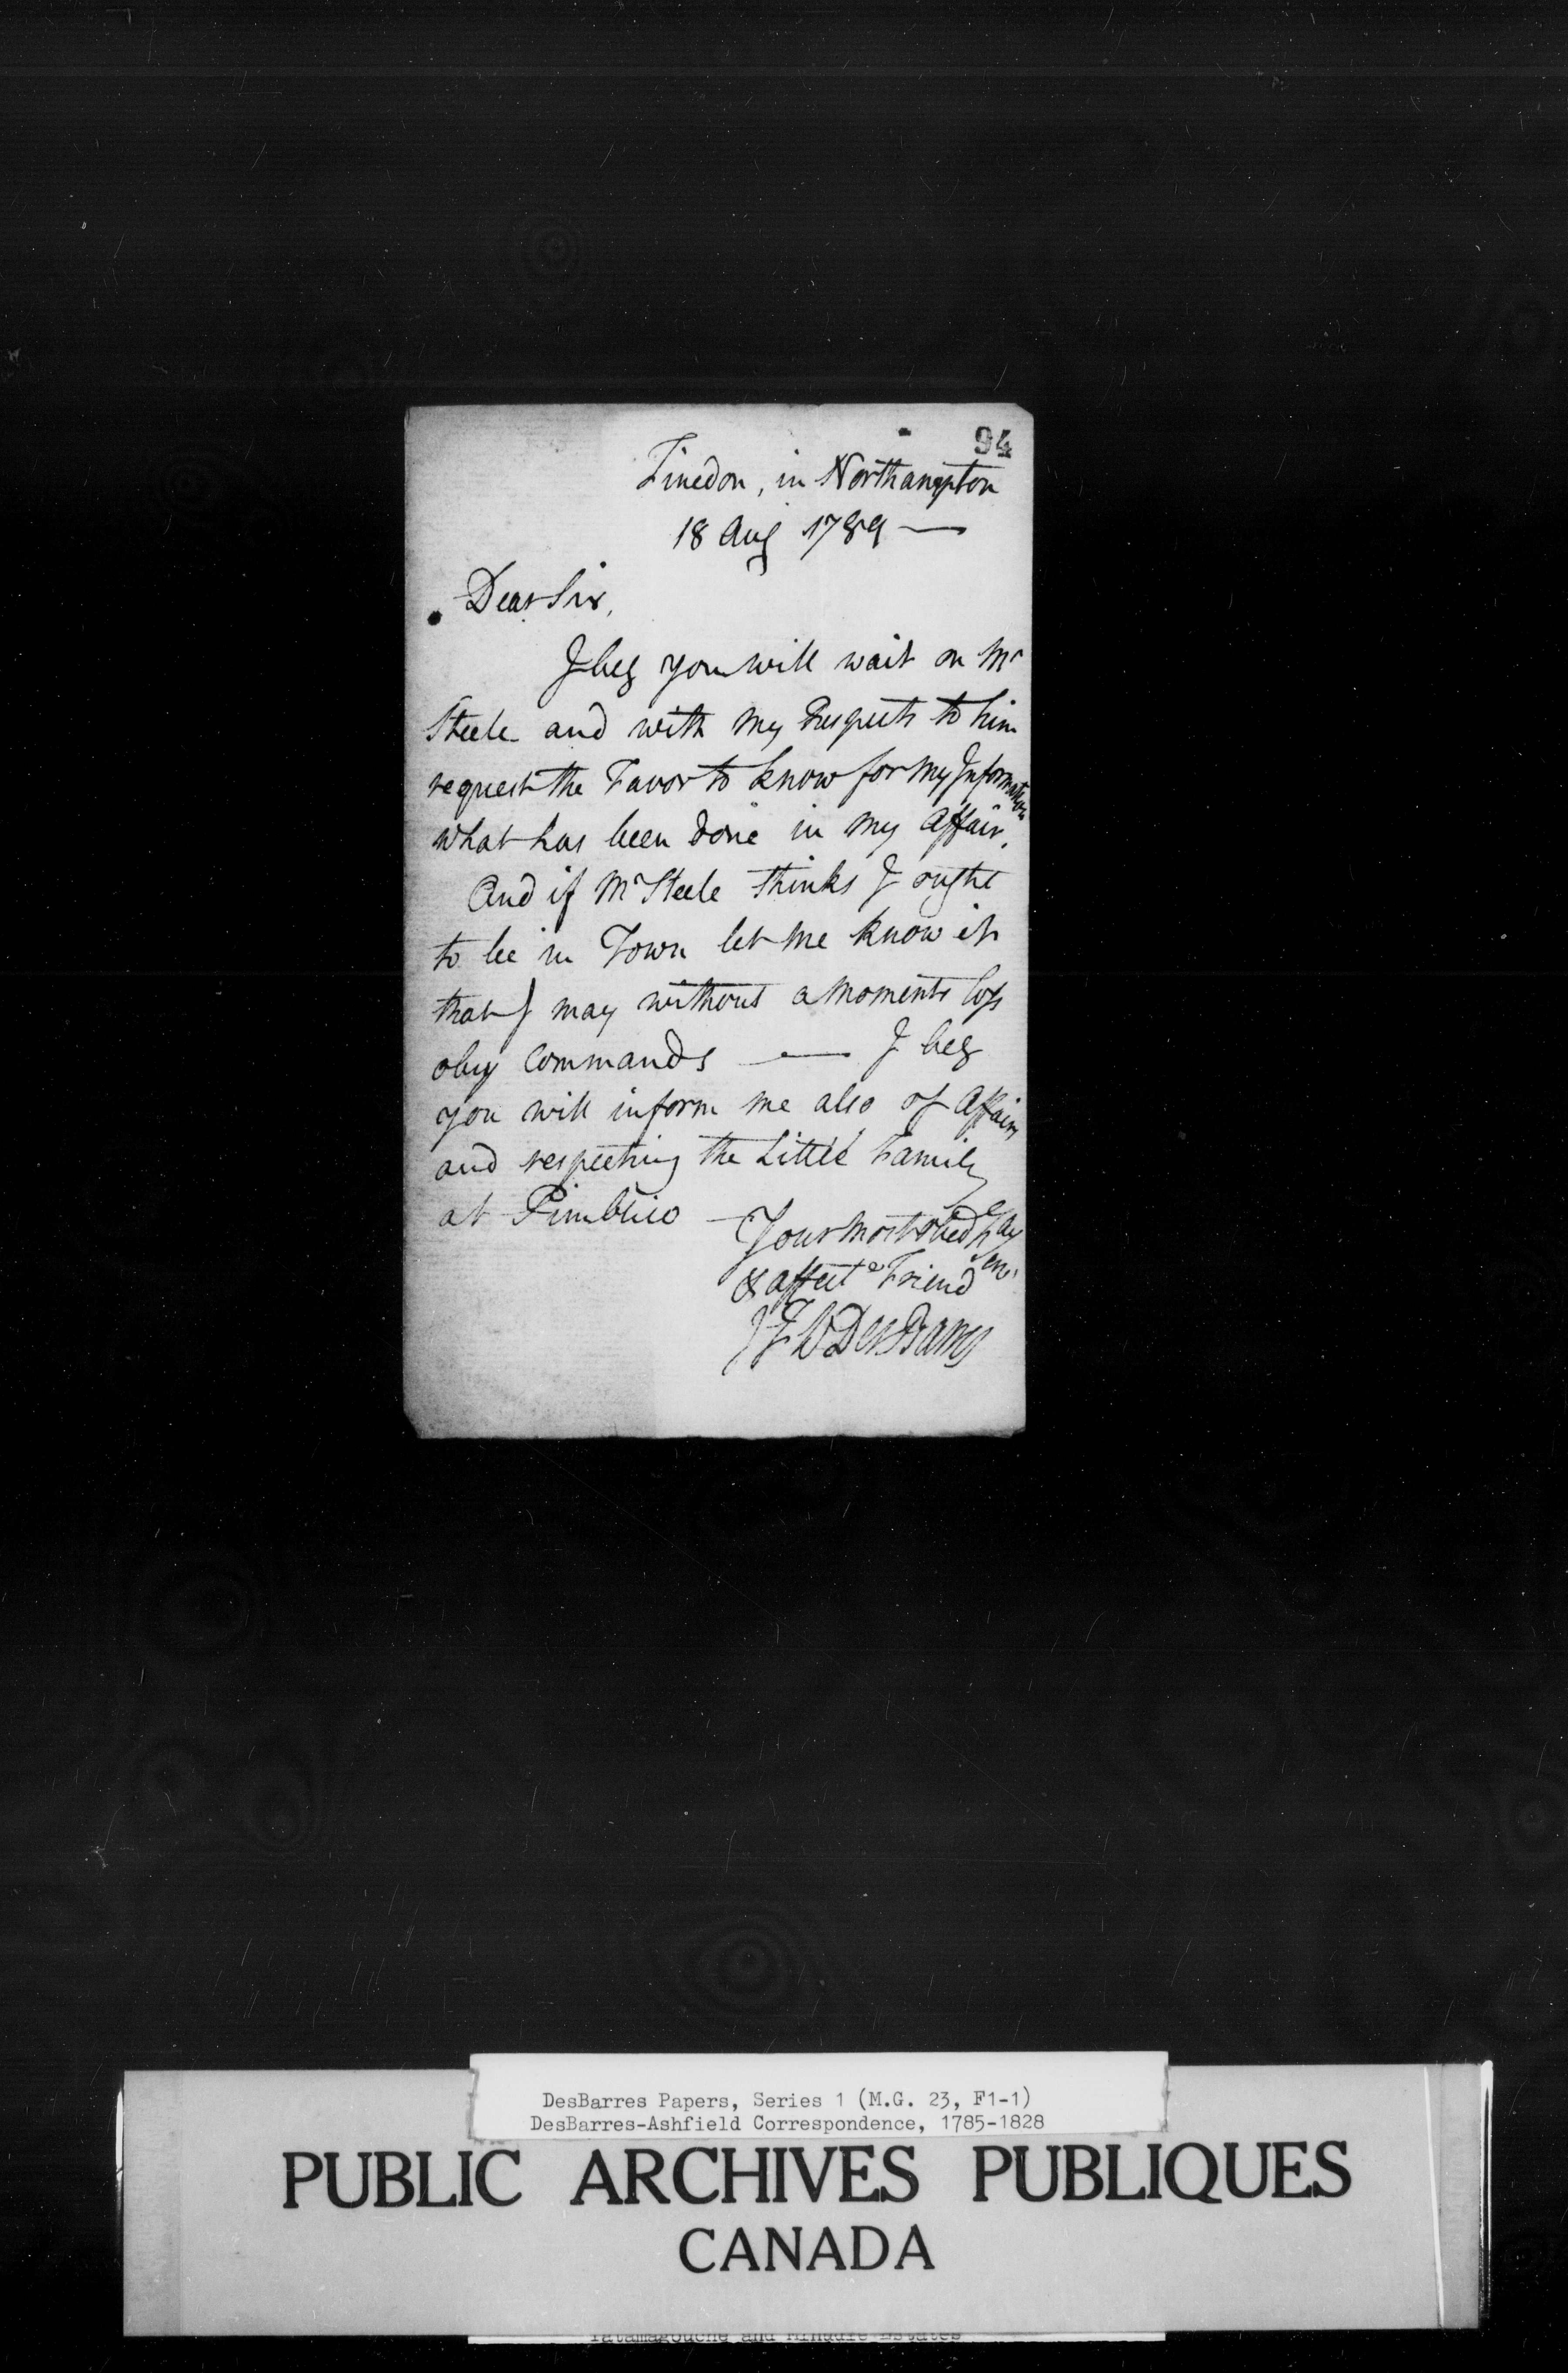 94
Finedon, in Northampton
18 Aug 1789 —
Dear Sir,
I beg you will wait on Mr
Steele and with my Respects to him
request the Favor to know for my Information
what has been done in my Affair.
And if Mr Steele thinks I ought
to be in Town let me know it
that I may without a moments loss
obey Commands — I beg
you will inform me also of Affairs
and respecting the Little Family
at Pimlico —
Your most obed
& affect e Friend
J F W DesBarres
DesBarres Papers, Series 1 (M.G. 23, F1-1)
DesBarres-Ashfield Correspondence, 1785-1828
PUBLIC ARCHIVES PUBLIQUES
CANADA
Tatamagouche and Minudie Estates